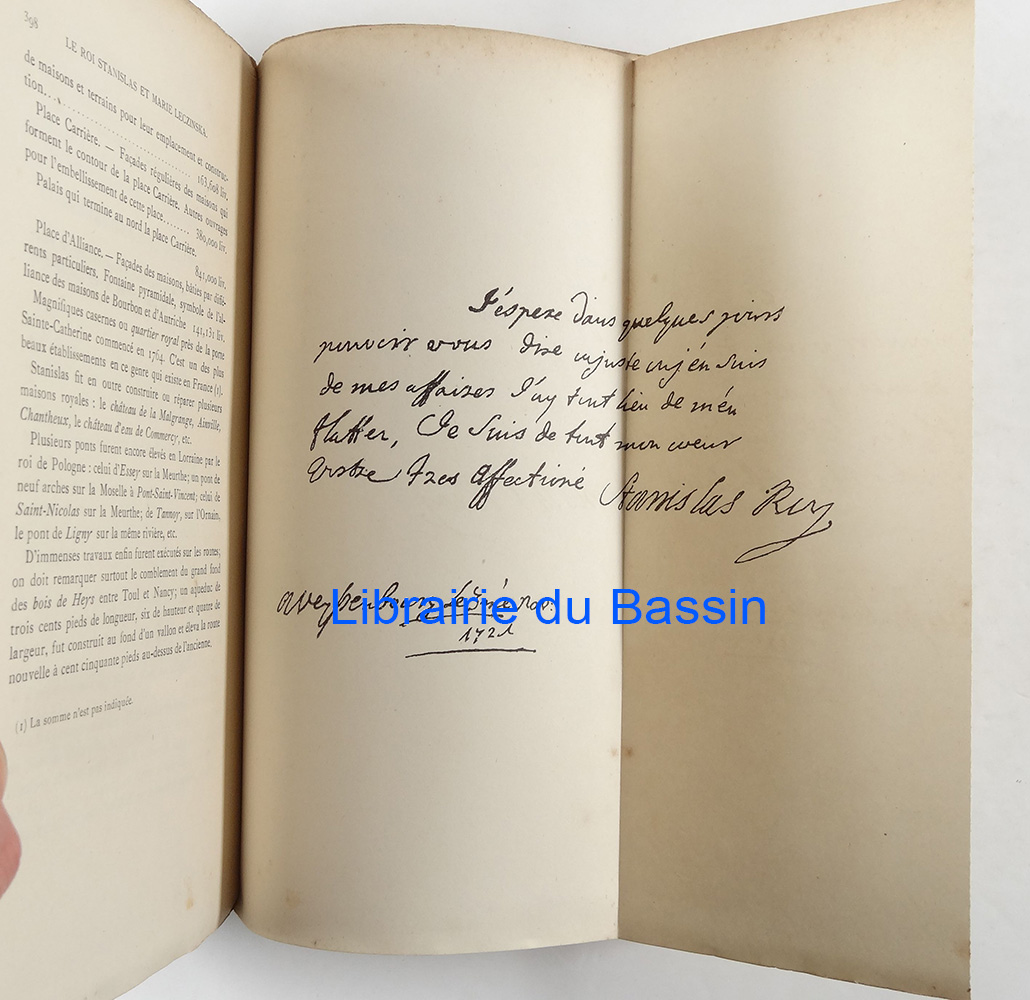 398
LE ROI STANISLAS ET MARIE LECZINSKA.
de maisons et terrains pour leur emplacement et construc-
tion... 163,608 liv.
Place Carrière. — Façades régulières des maisons qui
forment le contour de la place Carrière. Autres ouvrages
pour l'embellissement de cette place........ 380,000 liv.
Palais qui termine au nord la place Carrière.
841,000 liv.
Place d'Alliance. — Façades des maisons, bâties par diffé-
rents particuliers. Fontaine pyramidale, symbole de l'al-
liance des maisons de Bourbon et d'Autriche 141,131 liv.
Magnifiques casernes ou quartier royal près de la porte
Sainte-Catherine commencé en 1764. C'est un des plus
beaux établissements en ce genre qui existe en France (1).
Stanislas fit en outre construire ou réparer plusieurs
maisons royales : le château de la Malgrange, Ainville,
Chantheux, le château d'eau de Commercy, etc.
Plusieurs ponts furent encore élevés en Lorraine par le
roi de Pologne : celui d'Essey sur la Meurthe; un pont de
neuf arches sur la Moselle à Pont-Saint-Vincent; celui de
Saint-Nicolas sur la Meurthe; de Tannoy, sur l'Ornain,
le pont de Ligny sur la même rivière, etc.
D'immenses travaux enfin furent exécutés sur les routes;
on doit remarquer surtout le comblement du grand fond
des bois de Heys entre Toul et Nancy; un aqueduc de
trois cents pieds de longueur, six de hauteur et quatre de
largeur, fut construit au fond d'un vallon et éleva la route
nouvelle à cent cinquante pieds au-dessus de l'ancienne.
(1) La somme n'est pas indiquée.
J'éspere dans quelques jours
pouvoir vous dire au juste ou j'en suis
de mes affaires J'ay tout lieu de m'en
flatter, Je suis de tout mon coeur
Vostre tres affectioné Stanislas Roy
1721
Librairie du Bassin